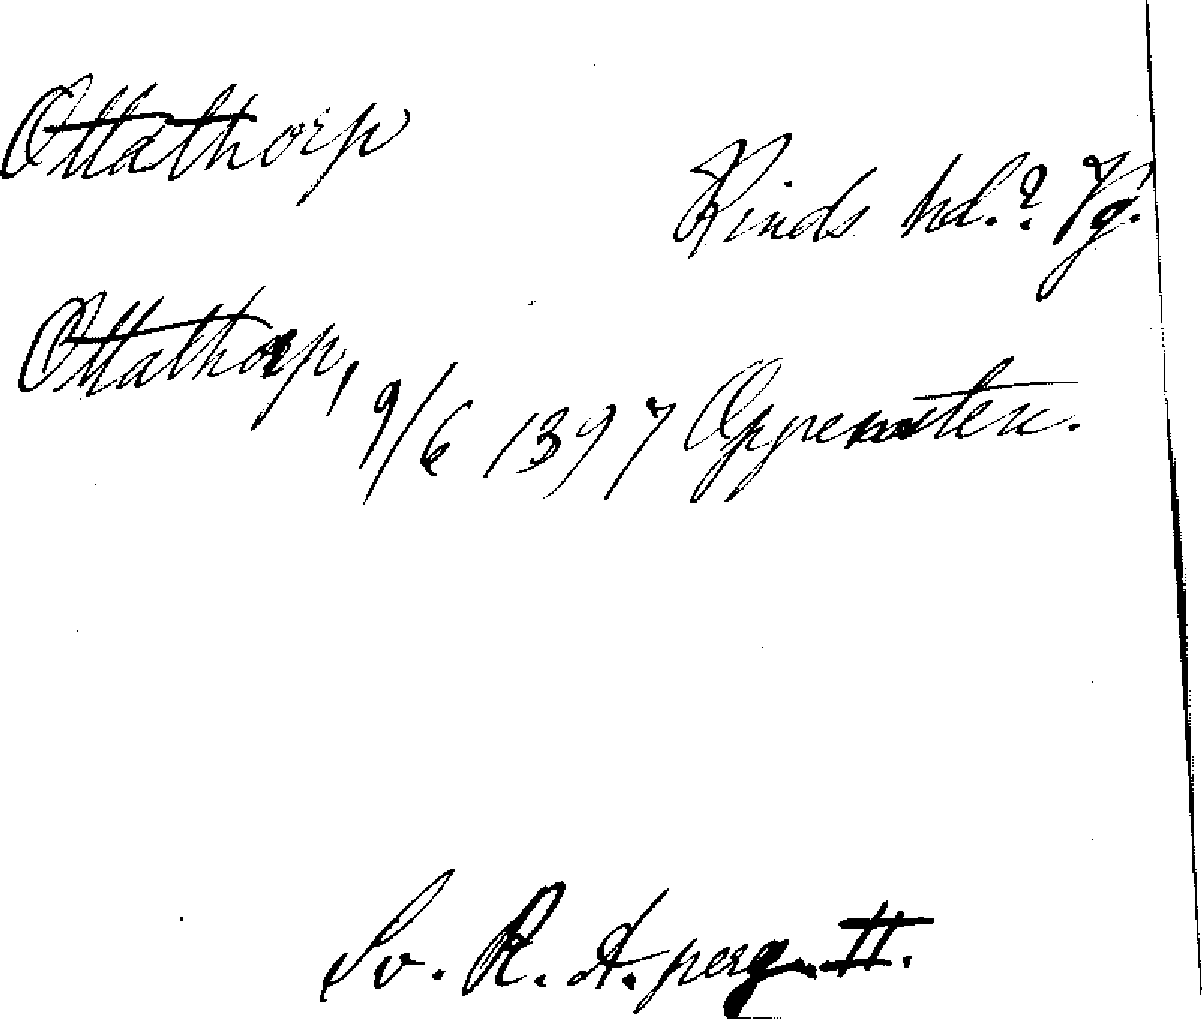 Ottathorp
Kinds hd.? Vg.
Ottathorp, 9/6 1397 Oppensten.
Sv. R. A. perg. II.